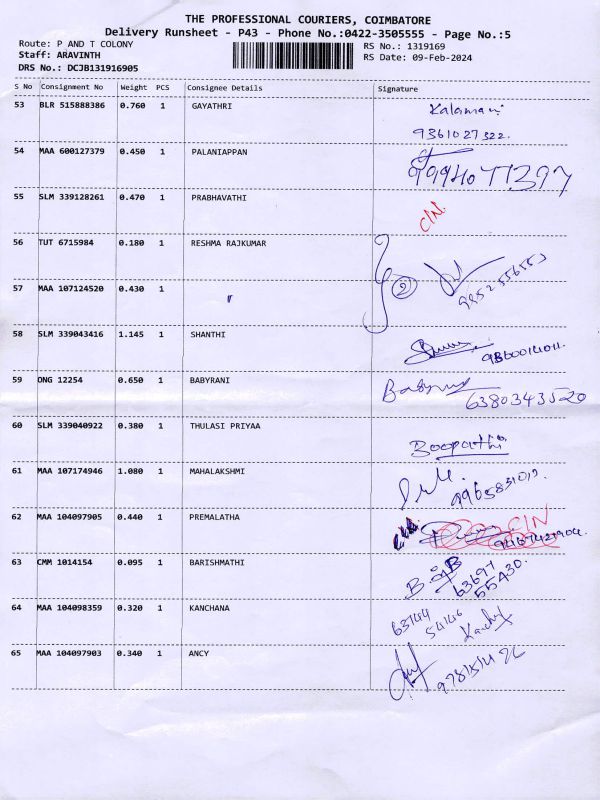 THE PROFESSIONAL COURIERS, COIMBATORE
Delivery Runsheet - P43 - Phone No.:0422-3505555 - Page No.:5
Route: P AND T COLONY
RS No.: 1319169
Staff: ARAVINTH
RS Date: 09-Feb-2024
DRS No.: DCJB131916905
S No Consignment No Weight PCS Consignee Details Signature
53 BLR 515888386 0.760 1 GAYATHRI Kalamani
9361027322.
54 MAA 600127379 0.450 1 PALANIAPPAN
9994077397
55 SLM 339128261 0.470 1 PRABHAVATHI
CIN.
56 TUT 6715984 0.180 1 RESHMA RAJKUMAR
57 MAA 107124520 0.430 1 " 2
58 SLM 339043416 1.145 1 SHANTHI
59 DNG 12254 0.650 1 BABYRANI
6380343520
60 SLM 339040922 0.380 1 THULASI PRIYAA
Boopathi
61 MAA 107174946 1.080 1 MAHALAKSHMI
62 MAA 104097905 0.440 1 PREMALATHA CIN
63 CMM 1014154 0.095 1 BARISHMATHI
63697
55430.
64 MAA 104098359 0.320 1 KANCHANA
63744
54146
65 MAA 104097903 0.340 1 ANCY